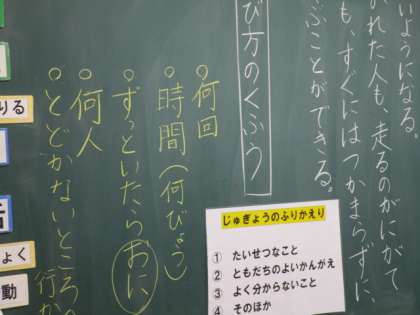 いようになる。
かれた人も、走るのがにがて
も、すぐにはつかまらずに、
ぶことができる。
び方のくふう
○何回
○時間(何びょう)
○ずっといたらおに
○何人
○とどかないところの
行か
りる
よく
動
じゅぎょうのふりかえり
① たいせつなこと
② ともだちのよいかんがえ
③ よく分からないこと
④ そのほか